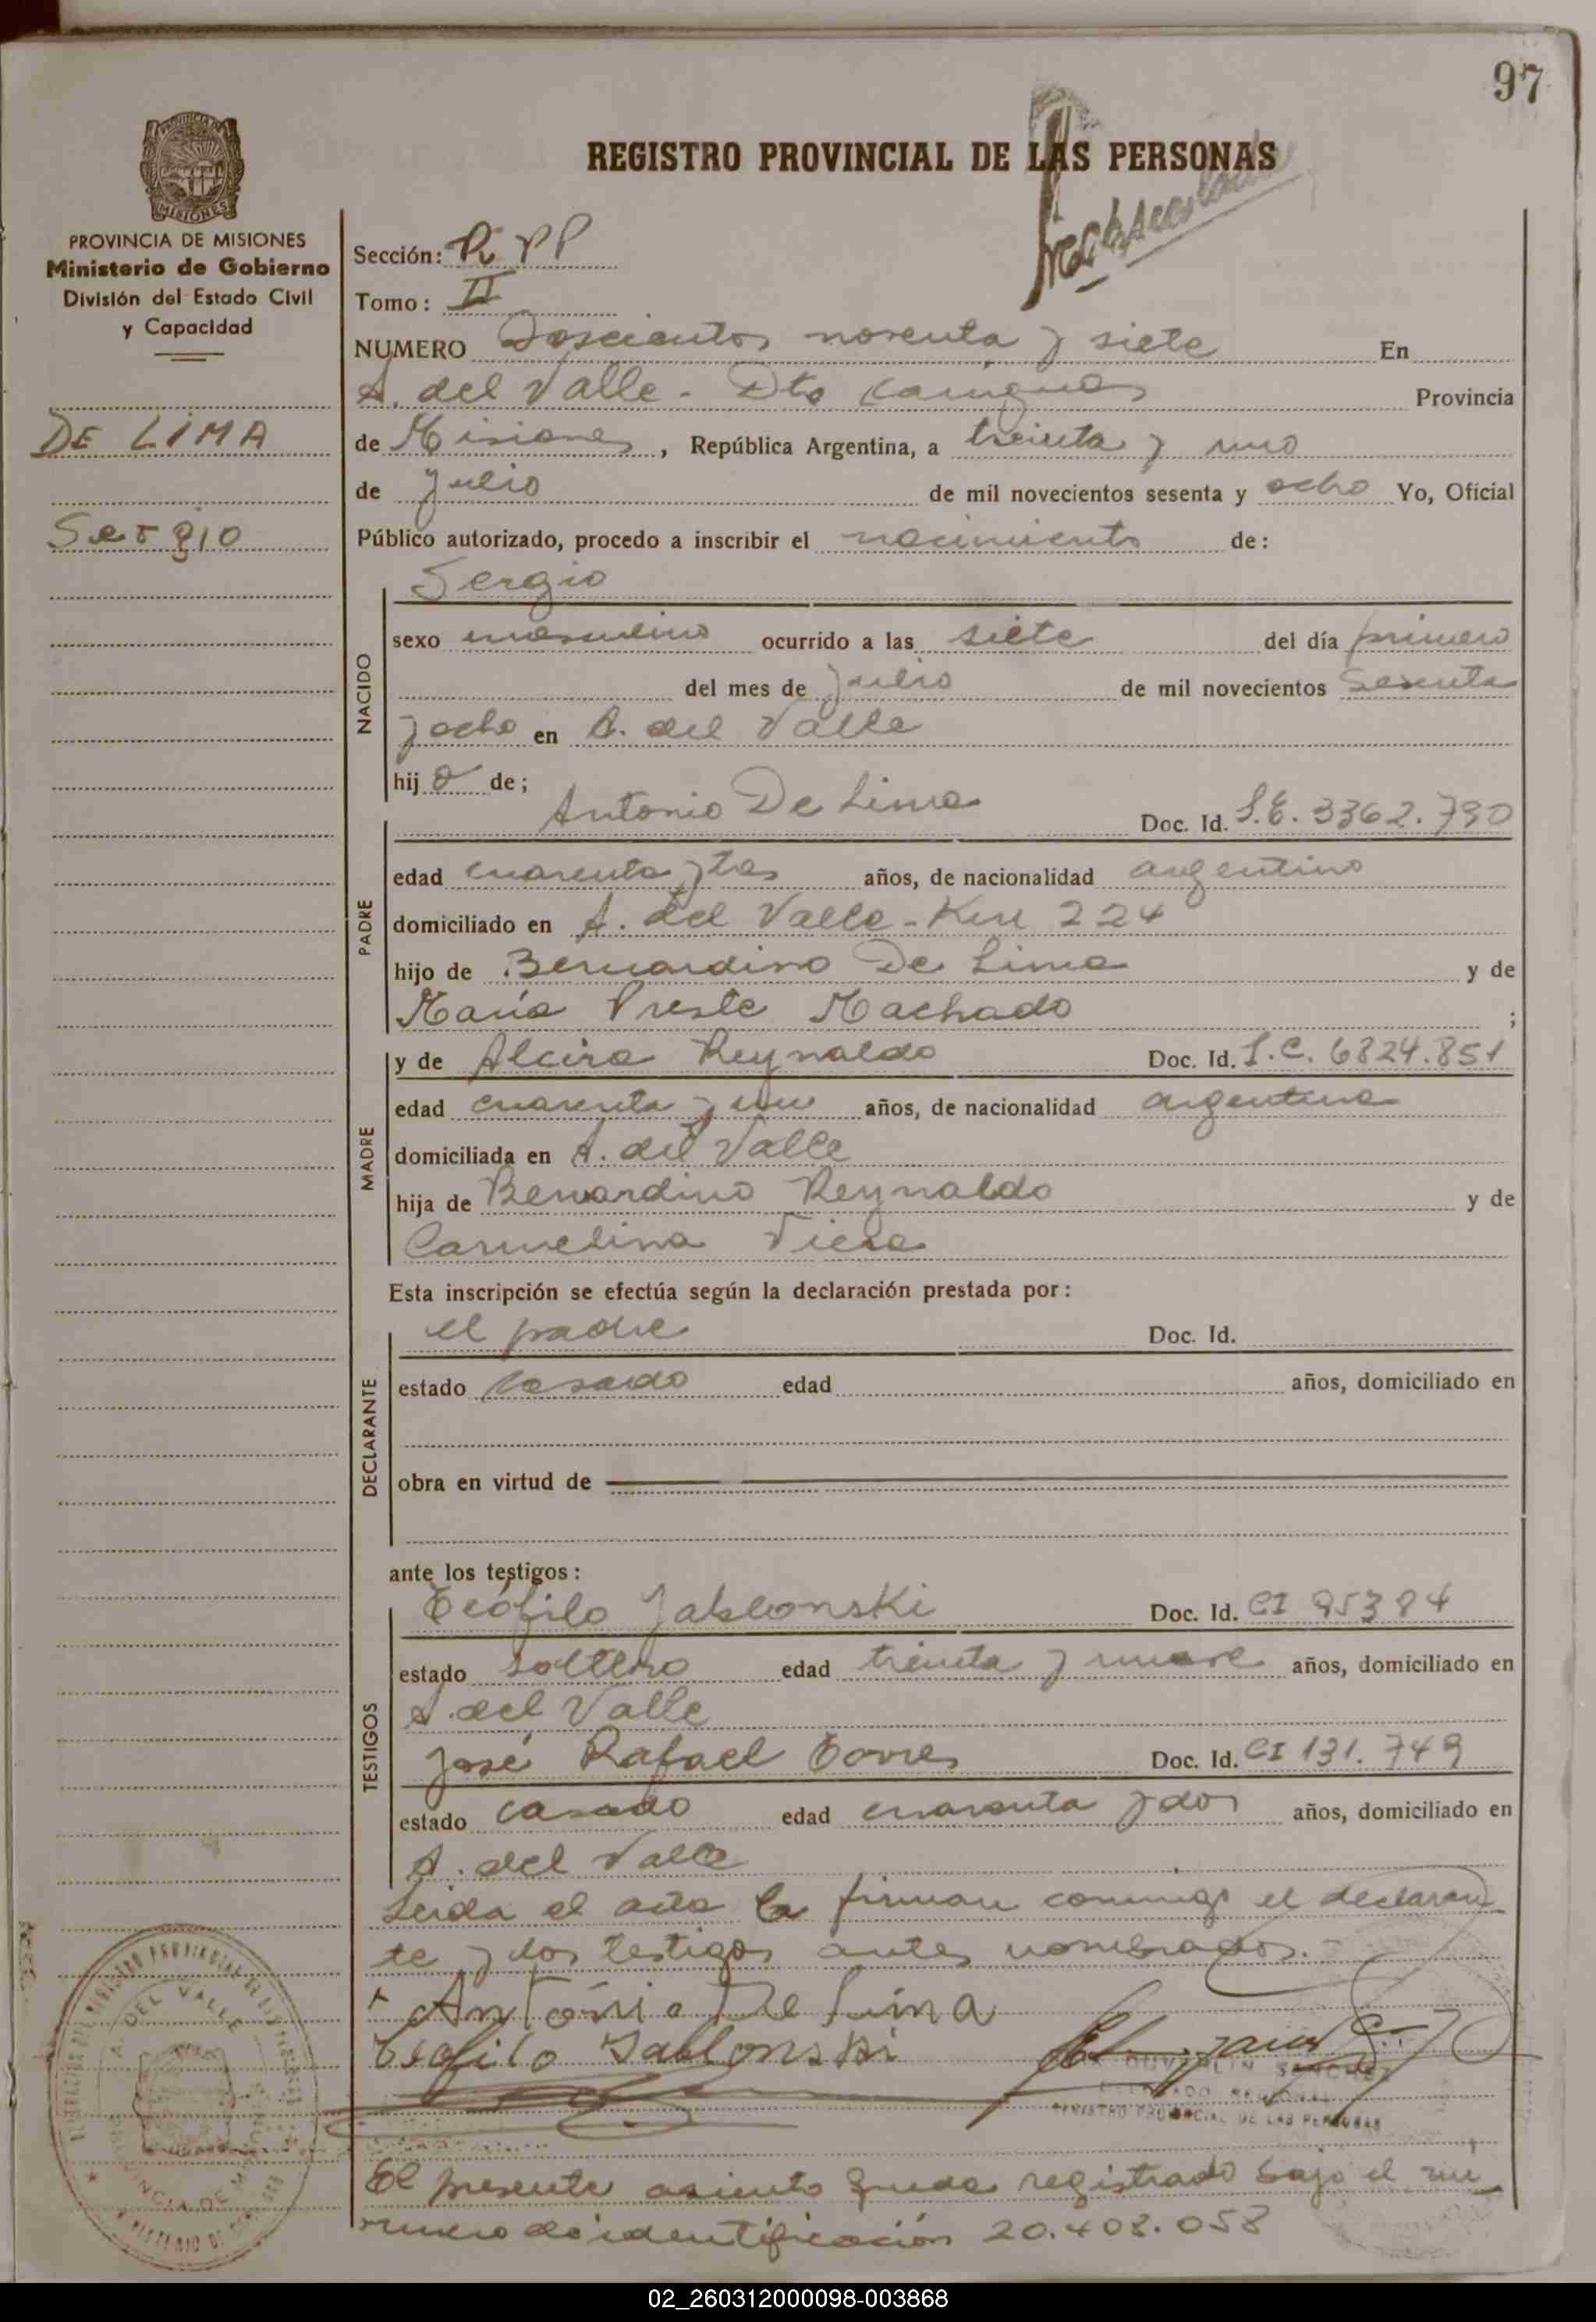 97
REGISTRO PROVINCIAL DE LAS PERSONAS
PROVINCIA DE MISIONES
Ministerio de Gobierno
División del Estado Civil
y Capacidad
DE LIMA
Sergio
Sección: R PP
Tomo: II
NUMERO Doscientos noventa y siete En
A. del Valle - Dto Cainguas Provincia
de Misiones, República Argentina, a treinta y uno
de Julio de mil novecientos sesenta y ocho Yo, Oficial
Público autorizado, procedo a inscribir el nacimiento de:
Sergio
NACIDO
sexo masculino ocurrido a las siete del día primero
del mes de Julio de mil novecientos sesenta
y ocho en A. del Valle
hijo de;
PADRE
Antonio De Lima Doc. Id. L.E. 3362.790
edad cuarenta y tres años, de nacionalidad argentino
domiciliado en A. del Valle - Km 224
hijo de Bernardino De Lima y de
María Preste Machado ;
MADRE
y de Alcira Reynaldo Doc. Id. L.C. 6824.851
edad cuarenta y un años, de nacionalidad argentina
domiciliada en A. del Valle
hija de Bernardino Reynaldo y de
Carmelina Viera
Esta inscripción se efectúa según la declaración prestada por:
DECLARANTE
el padre Doc. Id.
estado casado edad años, domiciliado en
obra en virtud de
ante los testigos:
TESTIGOS
Teófilo Jablonski Doc. Id. CI 95384
estado soltero edad treinta y nueve años, domiciliado en
A. del Valle
José Rafael Torres Doc. Id. CI 131.749
estado casado edad cuarenta y dos años, domiciliado en
A. del Valle
Leida el acta la firman conmigo el declaran
te y los testigos antes nombrados.-
Antonio De Lima
Teofilo Jablonski
SANCHEZ
REGISTRO PROVINCIAL DE LAS PERSONAS
A. DEL VALLE
El presente asiento queda registrado bajo el nú
mero de identificación 20.408.058
02_260312000098-003868